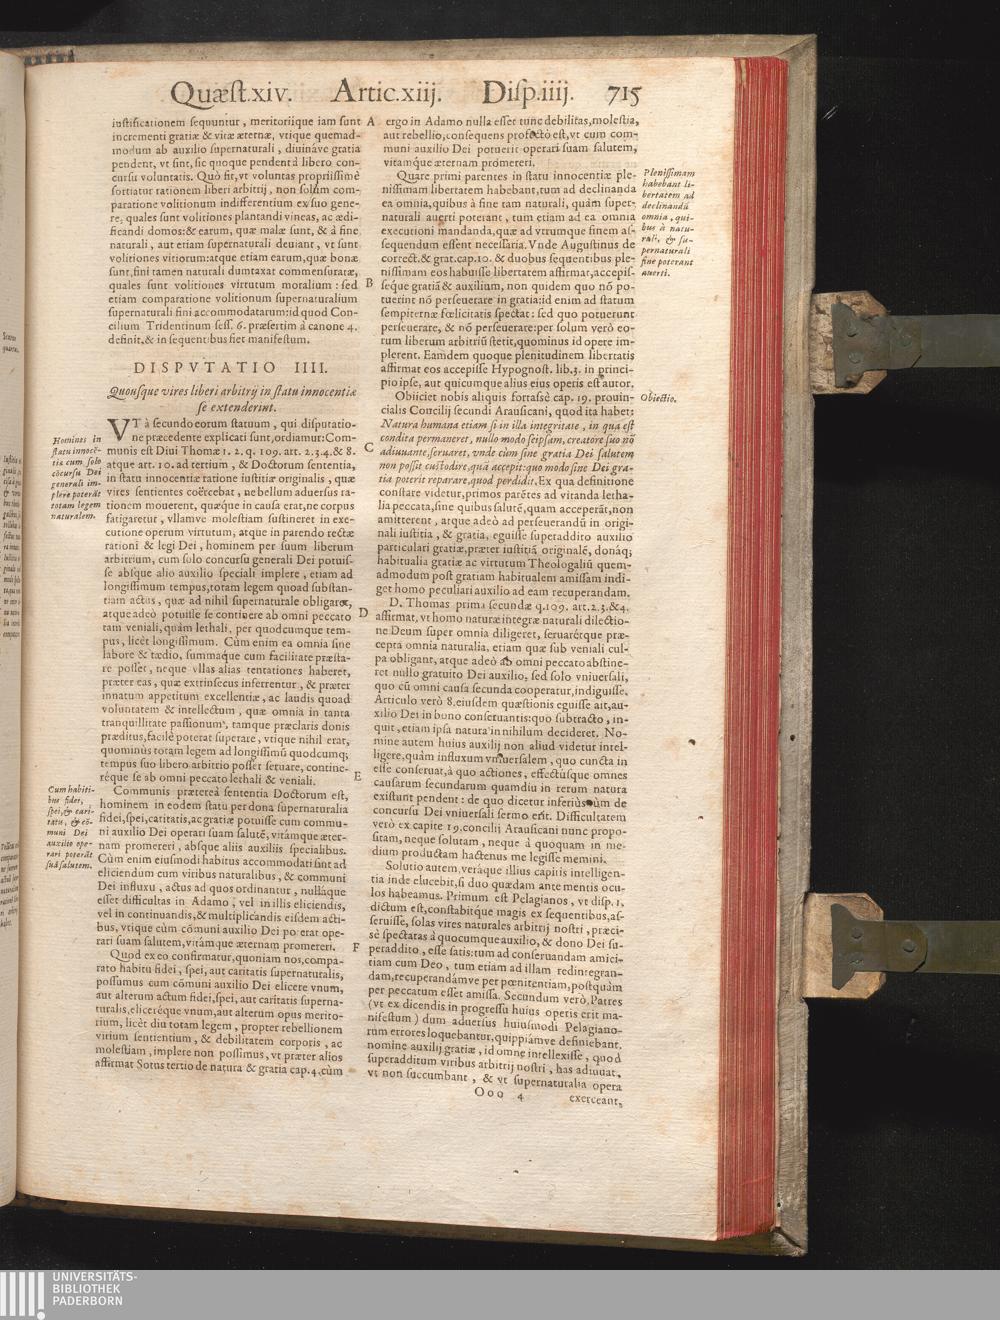 Quæst.xiv. Artic.xiij. Disp.iiij. 715
iustificationem sequuntur, meritoriique iam sunt
incrementi gratiæ & vitæ æternæ, vtique quemad-
modum ab auxilio supernaturali, diuináve gratia
pendent, vt sint, sic quoque pendent à libero con-
cursu voluntatis. Quò fit, vt voluntas propriissimè
sortiatur rationem liberi arbitrij, non solùm com-
paratione volitionum indifferentium ex suo gene-
re, quales sunt volitiones plantandi vineas, ac ædi-
ficandi domos: & earum, quæ malæ sunt, & à fine
naturali, aut etiam supernaturali deuiant, vt sunt
volitiones vitiorum: atque etiam earum, quæ bonæ
sunt, fini tamen naturali dumtaxat commensuratæ,
quales sunt volitiones virtutum moralium: sed
etiam comparatione volitionum supernaturalium
supernaturali fini accommodatarum: id quod Con-
cilium Tridentinum sess. 6. præsertim à canone 4.
definit, & in sequentibus fiet manifestum.
DISPVTATIO IIII.
Quousque vires liberi arbitrij in statu innocentiæ
se extenderint.
VT à secundo eorum statuum, qui disputatio-
ne præcedente explicati sunt, ordiamur: Com-
munis est Diui Thomæ 1. 2. q. 109. art. 2. 3. 4. & 8.
atque art. 10. ad tertium, & Doctorum sententia,
in statu innocentiæ ratione iustitiæ originalis, quæ
vires sentientes coërcebat, ne bellum aduersus ra-
tionem mouerent, quæque in causa erat, ne corpus
fatigaretur, vllamve molestiam sustineret in exe-
cutione operum virtutum, atque in parendo rectæ
rationi & legi Dei, hominem per suum liberum
arbitrium, cum solo concursu generali Dei potuis-
se absque alio auxilio speciali implere, etiam ad
longissimum tempus, totam legem quoad substan-
tiam actus, quæ ad nihil supernaturale obligaret,
atque adeò potuisse se continere ab omni peccato
tam veniali, quàm lethali, per quodcumque tem-
pus, licèt longissimum. Cùm enim ea omnia sine
labore & tædio, summáque cum facilitate præsta-
re posset, neque vllas alias tentationes haberet,
præter eas, quæ extrinsecus inferrentur, & præter
innatum appetitum excellentiæ, ac laudis quoad
voluntatem & intellectum, quæ omnia in tanta
tranquillitate passionum, tamque præclaris donis
præditus, facilè poterat superare, vtique nihil erat,
quominùs totam legem ad longissimũ quodcumq;
tempus suo libero arbitrio posset seruare, contine-
réque se ab omni peccato lethali & veniali.
Communis prætereà sententia Doctorum est,
hominem in eodem statu per dona supernaturalia
fidei, spei, caritatis, ac gratiæ potuisse cum commu-
ni auxilio Dei operari suam salutẽ, vitámque æter-
nam promereri, absque aliis auxiliis specialibus.
Cùm enim eiusmodi habitus accommodati sint ad
eliciendum cum viribus naturalibus, & communi
Dei influxu, actus ad quos ordinantur, nulláque
esset difficultas in Adamo, vel in illis eliciendis,
vel in continuandis, & multiplicandis eisdem acti-
bus, vtique cùm cõmuni auxilio Dei poterat ope-
rari suam salutem, vitámque æternam promereri.
Quod ex eo confirmatur, quoniam nos, compa-
rato habitu fidei, spei, aut caritatis supernaturalis,
possumus cum cõmuni auxilio Dei elicere vnum,
aut alterum actum fidei, spei, aut caritatis superna-
turalis, eliceréque vnum, aut alterum opus merito-
rium, licèt diu totam legem, propter rebellionem
virium sentientium, & debilitatem corporis, ac
molestiam, implere non possimus, vt præter alios
affirmat Sotus tertio de natura & gratia cap. 4. cùm
Homines in
statu innocẽ-
tiæ cum solo
cõcursu Dei
generali im-
plere poterãt
totam legem
naturalem.
Cum habiti-
bus fidei,
spei, & cari-
tatis, & cõ-
muni Dei
auxilio ope-
rari poterãt
suã salutem.
A
B
C
D
E
F
ergo in Adamo nulla esset tunc debilitas, molestia,
aut rebellio, consequens profectò est, vt cum com-
muni auxilio Dei potuerit operari suam salutem,
vitámque æternam promereri.
Quare primi parentes in statu innocentiæ ple-
nissimam libertatem habebant, tum ad declinanda
ea omnia, quibus à fine tam naturali, quàm super-
naturali auerti poterant, tum etiam ad ea omnia
executioni mandanda, quæ ad vtrumque finem as-
sequendum essent necessaria. Vnde Augustinus de
correct. & grat. cap. 10. & duobus sequentibus ple-
nissimam eos habuisse libertatem affirmat, accepis-
séque gratiã & auxilium, non quidem quo nõ po-
tuerint nõ perseuerare in gratia: id enim ad statum
sempiternæ fœlicitatis spectat: sed quo potuerunt
perseuerare, & nõ perseuerare: per solum verò eo-
rum liberum arbitriũ stetit, quominus id opere im-
plerent. Eamdem quoque plenitudinem libertatis
affirmat eos accepisse Hypognost. lib. 3. in princi-
pio ipse, aut quicumque alius eius operis est autor.
Obiiciet nobis aliquis fortassè cap. 19. prouin-
cialis Concilij secundi Arausicani, quod ita habet:
Natura humana etiam si in illa integritate, in qua est
condita permaneret, nullo modo seipsam, creatore suo nõ
adiuuante, seruaret, vnde cùm sine gratia Dei salutem
non possit custodire, quã accepit: quo modo sine Dei gra-
tia poterit reparare, quod perdidit. Ex qua definitione
constare videtur, primos parẽtes ad vitanda letha-
lia peccata, sine quibus salutẽ, quam acceperãt, non
amitterent, atque adeò ad perseuerandũ in origi-
nali iustitia, & gratia, eguisse superaddito auxilio
particulari gratiæ, præter iustitiã originalẽ, donáq;
habitualia gratiæ ac virtutum Theologaliũ quem-
admodum post gratiam habitualem amissam indi-
get homo peculiari auxilio ad eam recuperandam.
D. Thomas prima secundæ q. 109. art. 2. 3. & 4.
affirmat, vt homo naturæ integræ naturali dilectio-
ne Deum super omnia diligeret, seruarétque præ-
cepta omnia naturalia, etiam quæ sub veniali cul-
pa obligant, atque adeò ab omni peccato abstine-
ret nullo gratuito Dei auxilio, sed solo vniuersali,
quo cũ omni causa secunda cooperatur, indiguisse.
Articulo verò 8. eiusdem quæstionis eguisse ait, au-
xilio Dei in bono conseruantis: quo subtracto, in-
quit, etiam ipsa natura in nihilum decideret. No-
mine autem huius auxilij non aliud videtur intel-
ligere, quàm influxum vniuersalem, quo cuncta in
esse conseruat, à quo actiones, effectúsque omnes
causarum secundarum quamdiu in rerum natura
existunt pendent: de quo dicetur inferiùs cùm de
concursu Dei vniuersali sermo erit. Difficultatem
verò ex capite 19. concilij Arausicani nunc propo-
sitam, neque solutam, neque à quoquam in me-
dium productam hactenus me legisse memini.
Solutio autem, veráque illius capitis intelligen-
tia inde elucebit, si duo quædam ante mentis ocu-
los habeamus. Primum est Pelagianos, vt disp. 1.
dictum est, constabitque magis ex sequentibus, as-
seruisse, solas vires naturales arbitrij nostri, præci-
sè spectatas à quocumque auxilio, & dono Dei su-
peraddito, esse satis: tum ad conseruandam amici-
tiam cum Deo, tum etiam ad illam redintegran-
dam, recuperandámve per pœnitentiam, postquàm
per peccatum esset amissa. Secundum verò, Patres
(vt ex dicendis in progressu huius operis erit ma-
nifestum) dum aduersus huiusmodi Pelagiano-
rum errores loquebantur, quippiámve definiebant,
nomine auxilij gratiæ, id omne intellexisse, quod
superadditum viribus arbitrij nostri, has adiuuat,
vt non succumbant, & vt supernaturalia opera
Ooo 4 exerceant,
Plenissimam
habebant li-
bertatem ad
declinandũ
omnia, qui-
bus à natu-
rali, & su-
pernaturali
fine poterant
auerti.
Obiectio.
UNIVERSITÄTS-
BIBLIOTHEK
PADERBORN